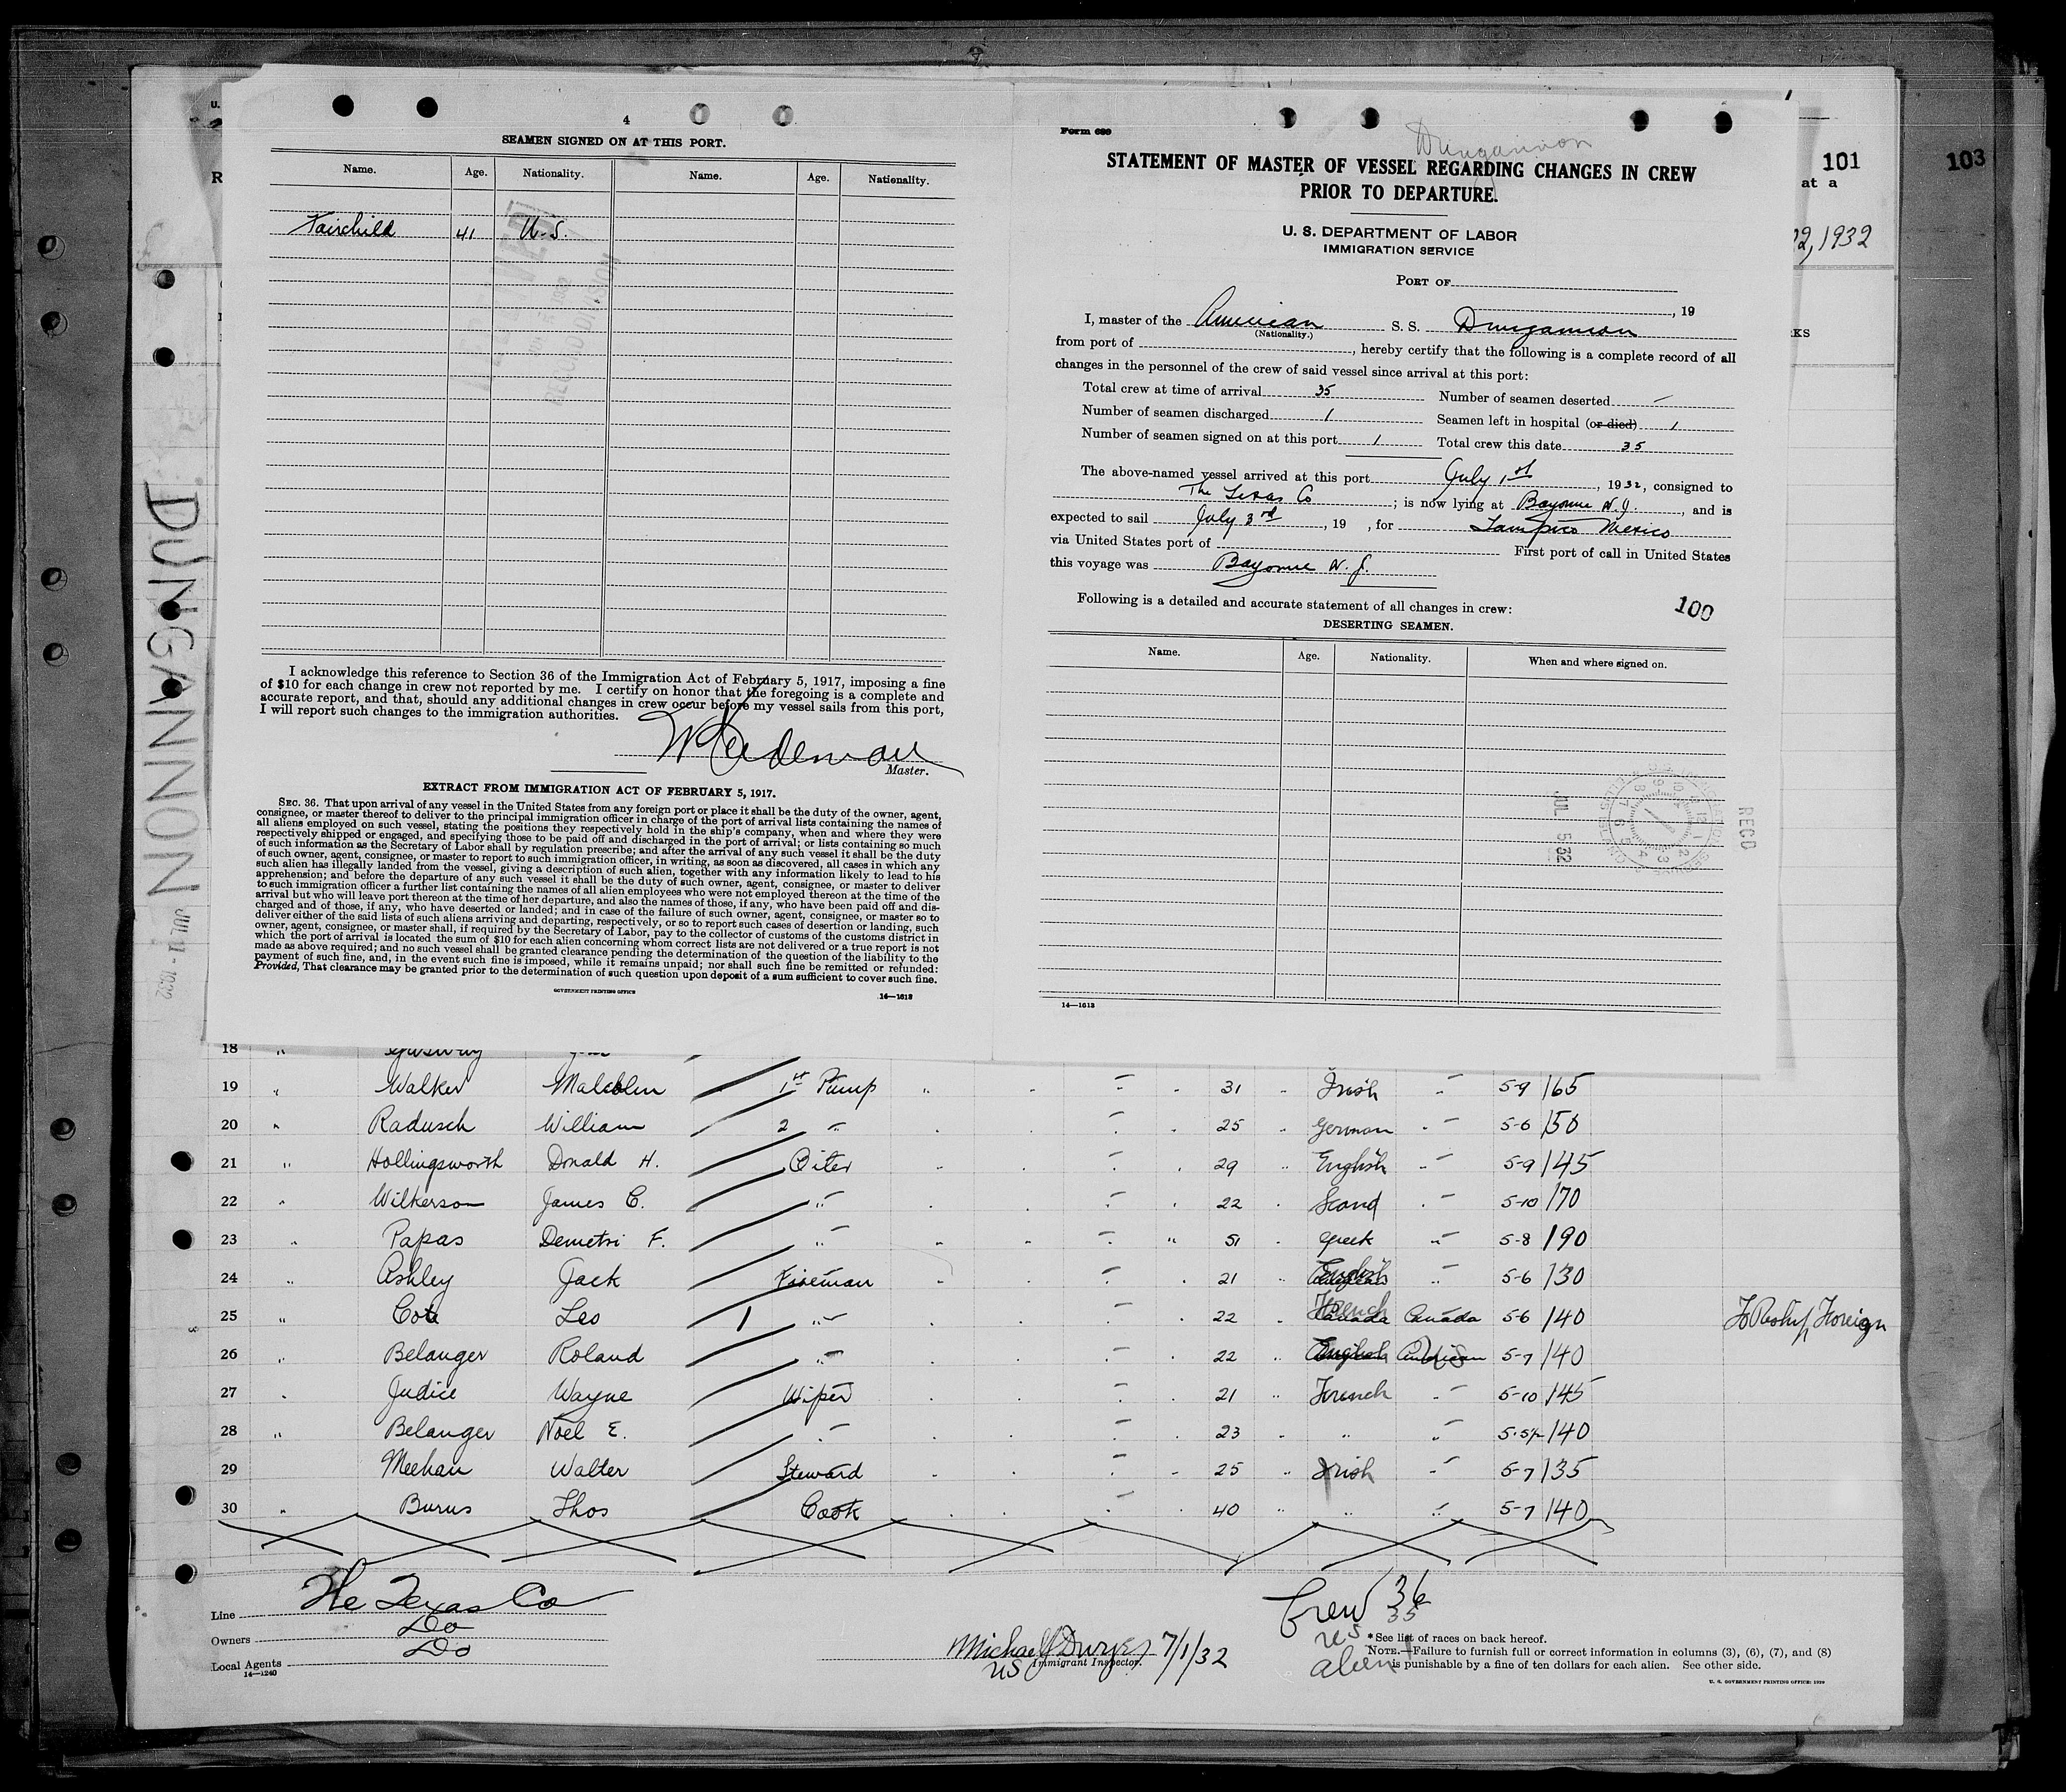 4
SEAMEN SIGNED ON AT THIS PORT.
Name. Age. Nationality. Name. Age. Nationality.
Fairchild 41 U.S.
I acknowledge this reference to Section 36 of the Immigration Act of February 5, 1917, imposing a fine
of $10 for each change in crew not reported by me. I certify on honor that the foregoing is a complete and
accurate report, and that, should any additional changes in crew occur before my vessel sails from this port,
I will report such changes to the immigration authorities.
Master.
EXTRACT FROM IMMIGRATION ACT OF FEBRUARY 5, 1917.
SEC. 36. That upon arrival of any vessel in the United States from any foreign port or place it shall be the duty of the owner, agent,
consignee, or master thereof to deliver to the principal immigration officer in charge of the port of arrival lists containing the names of
all aliens employed on such vessel, stating the positions they respectively hold in the ship's company, when and where they were
respectively shipped or engaged, and specifying those to be paid off and discharged in the port of arrival; or lists containing so much
of such information as the Secretary of Labor shall by regulation prescribe; and after the arrival of any such vessel it shall be the duty
of such owner, agent, consignee, or master to report to such immigration officer, in writing, as soon as discovered, all cases in which any
such alien has illegally landed from the vessel, giving a description of such alien, together with any information likely to lead to his
apprehension; and before the departure of any such vessel it shall be the duty of such owner, agent, consignee, or master to deliver
to such immigration officer a further list containing the names of all alien employees who were not employed thereon at the time of the
arrival but who will leave port thereon at the time of her departure, and also the names of those, if any, who have been paid off and dis-
charged and of those, if any, who have deserted or landed; and in case of the failure of such owner, agent, consignee, or master so to
deliver either of the said lists of such aliens arriving and departing, respectively, or so to report such cases of desertion or landing, such
owner, agent, consignee, or master shall, if required by the Secretary of Labor, pay to the collector of customs of the customs district in
which the port of arrival is located the sum of $10 for each alien concerning whom correct lists are not delivered or a true report is not
made as above required; and no such vessel shall be granted clearance pending the determination of the question of the liability to the
payment of such fine, and, in the event such fine is imposed, while it remains unpaid; nor shall such fine be remitted or refunded:
Provided, That clearance may be granted prior to the determination of such question upon deposit of a sum sufficient to cover such fine.
GOVERNMENT PRINTING OFFICE
14—1613
Form 689
Dungannon
STATEMENT OF MASTER OF VESSEL REGARDING CHANGES IN CREW
PRIOR TO DEPARTURE.
U. S. DEPARTMENT OF LABOR
IMMIGRATION SERVICE
PORT OF
, 19
I, master of the American S. S. Dungannon
(Nationality.)
from port of , hereby certify that the following is a complete record of all
changes in the personnel of the crew of said vessel since arrival at this port:
Total crew at time of arrival 35 Number of seamen deserted —
Number of seamen discharged 1 Seamen left in hospital (or died) 1
Number of seamen signed on at this port 1 Total crew this date 35
The above-named vessel arrived at this port July 1st, 1932, consigned to
The Texas Co; is now lying at Bayonne N.J., and is
expected to sail July 3rd, 19 , for Tampico Mexico
via United States port of First port of call in United States
this voyage was Bayonne N.J.
Following is a detailed and accurate statement of all changes in crew:
100
DESERTING SEAMEN.
Name. Age. Nationality. When and where signed on.
REC'D
JUL 5 32
14—1613
101
103
at a
22, 1932
KS
R
U.
DUNGANNON
JUL 1 - 1932
18
19 " Walker Malcolm 1st Pump 31 " Irish " 5-9 165
20 " Radusch William 2 " 25 " German " 5-6 150
21 " Hollingsworth Donald H. Oiler 29 " English " 5-9 145
22 " Wilkerson James C. " 22 " Scand " 5-10 170
23 " Papas Demetri F. " 51 " Greek " 5-8 190
24 " Ashley Jack Fireman 21 " English " 5-6 130
25 " Cote Leo 1 " 22 " French Canada Canada 5-6 140 To Reship Foreign
26 " Belanger Roland " 22 " English American US 5-7 140
27 " Judice Wayne Wiper 21 " French " 5-10 145
28 " Belanger Noel E. " 23 " " " 5-5½ 140
29 " Meehan Walter Steward 25 " Irish " 5-7 135
30 " Burns Thos Cook 40 " " " 5-7 140
Line The Texas Co
Owners Do
Local Agents Do
14—1240
Michael Dwyer 7/1/32
US Immigrant Inspector.
Crew 36
35
US
alien 1
*See list of races on back hereof.
NOTE.—Failure to furnish full or correct information in columns (3), (6), (7), and (8)
is punishable by a fine of ten dollars for each alien. See other side.
U. S. GOVERNMENT PRINTING OFFICE: 1930